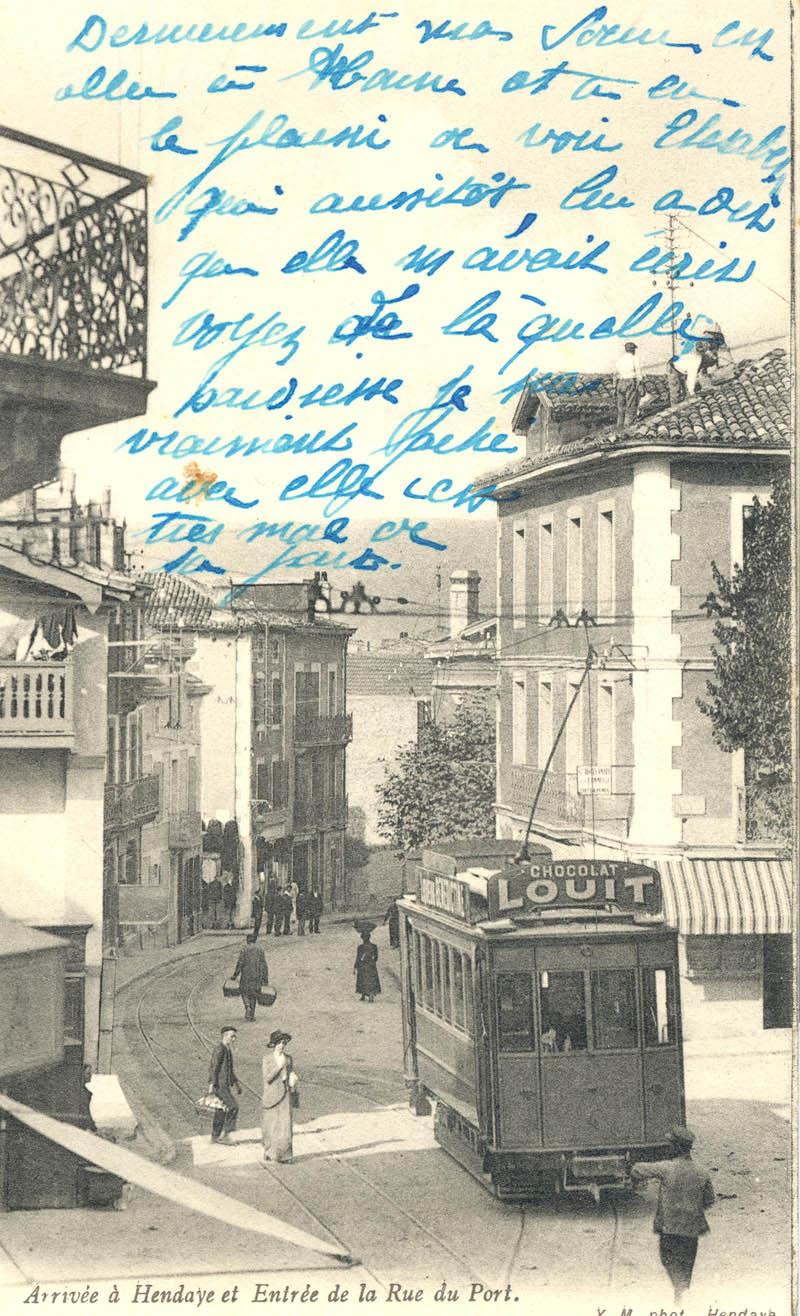 Dernierement mas Soeur en
allee a et a eu
le plaisir de voir
qui aussitôt lui a dit
que elle m'avait écrit
voyez de là quelle
je suis
vraiment faché
avec elle cest
tres mal de
sa part.
CHOCOLAT
LOUIT
Arrivée à Hendaye et Entrée de la Rue du Port.
Y. M. phot. Hendaye